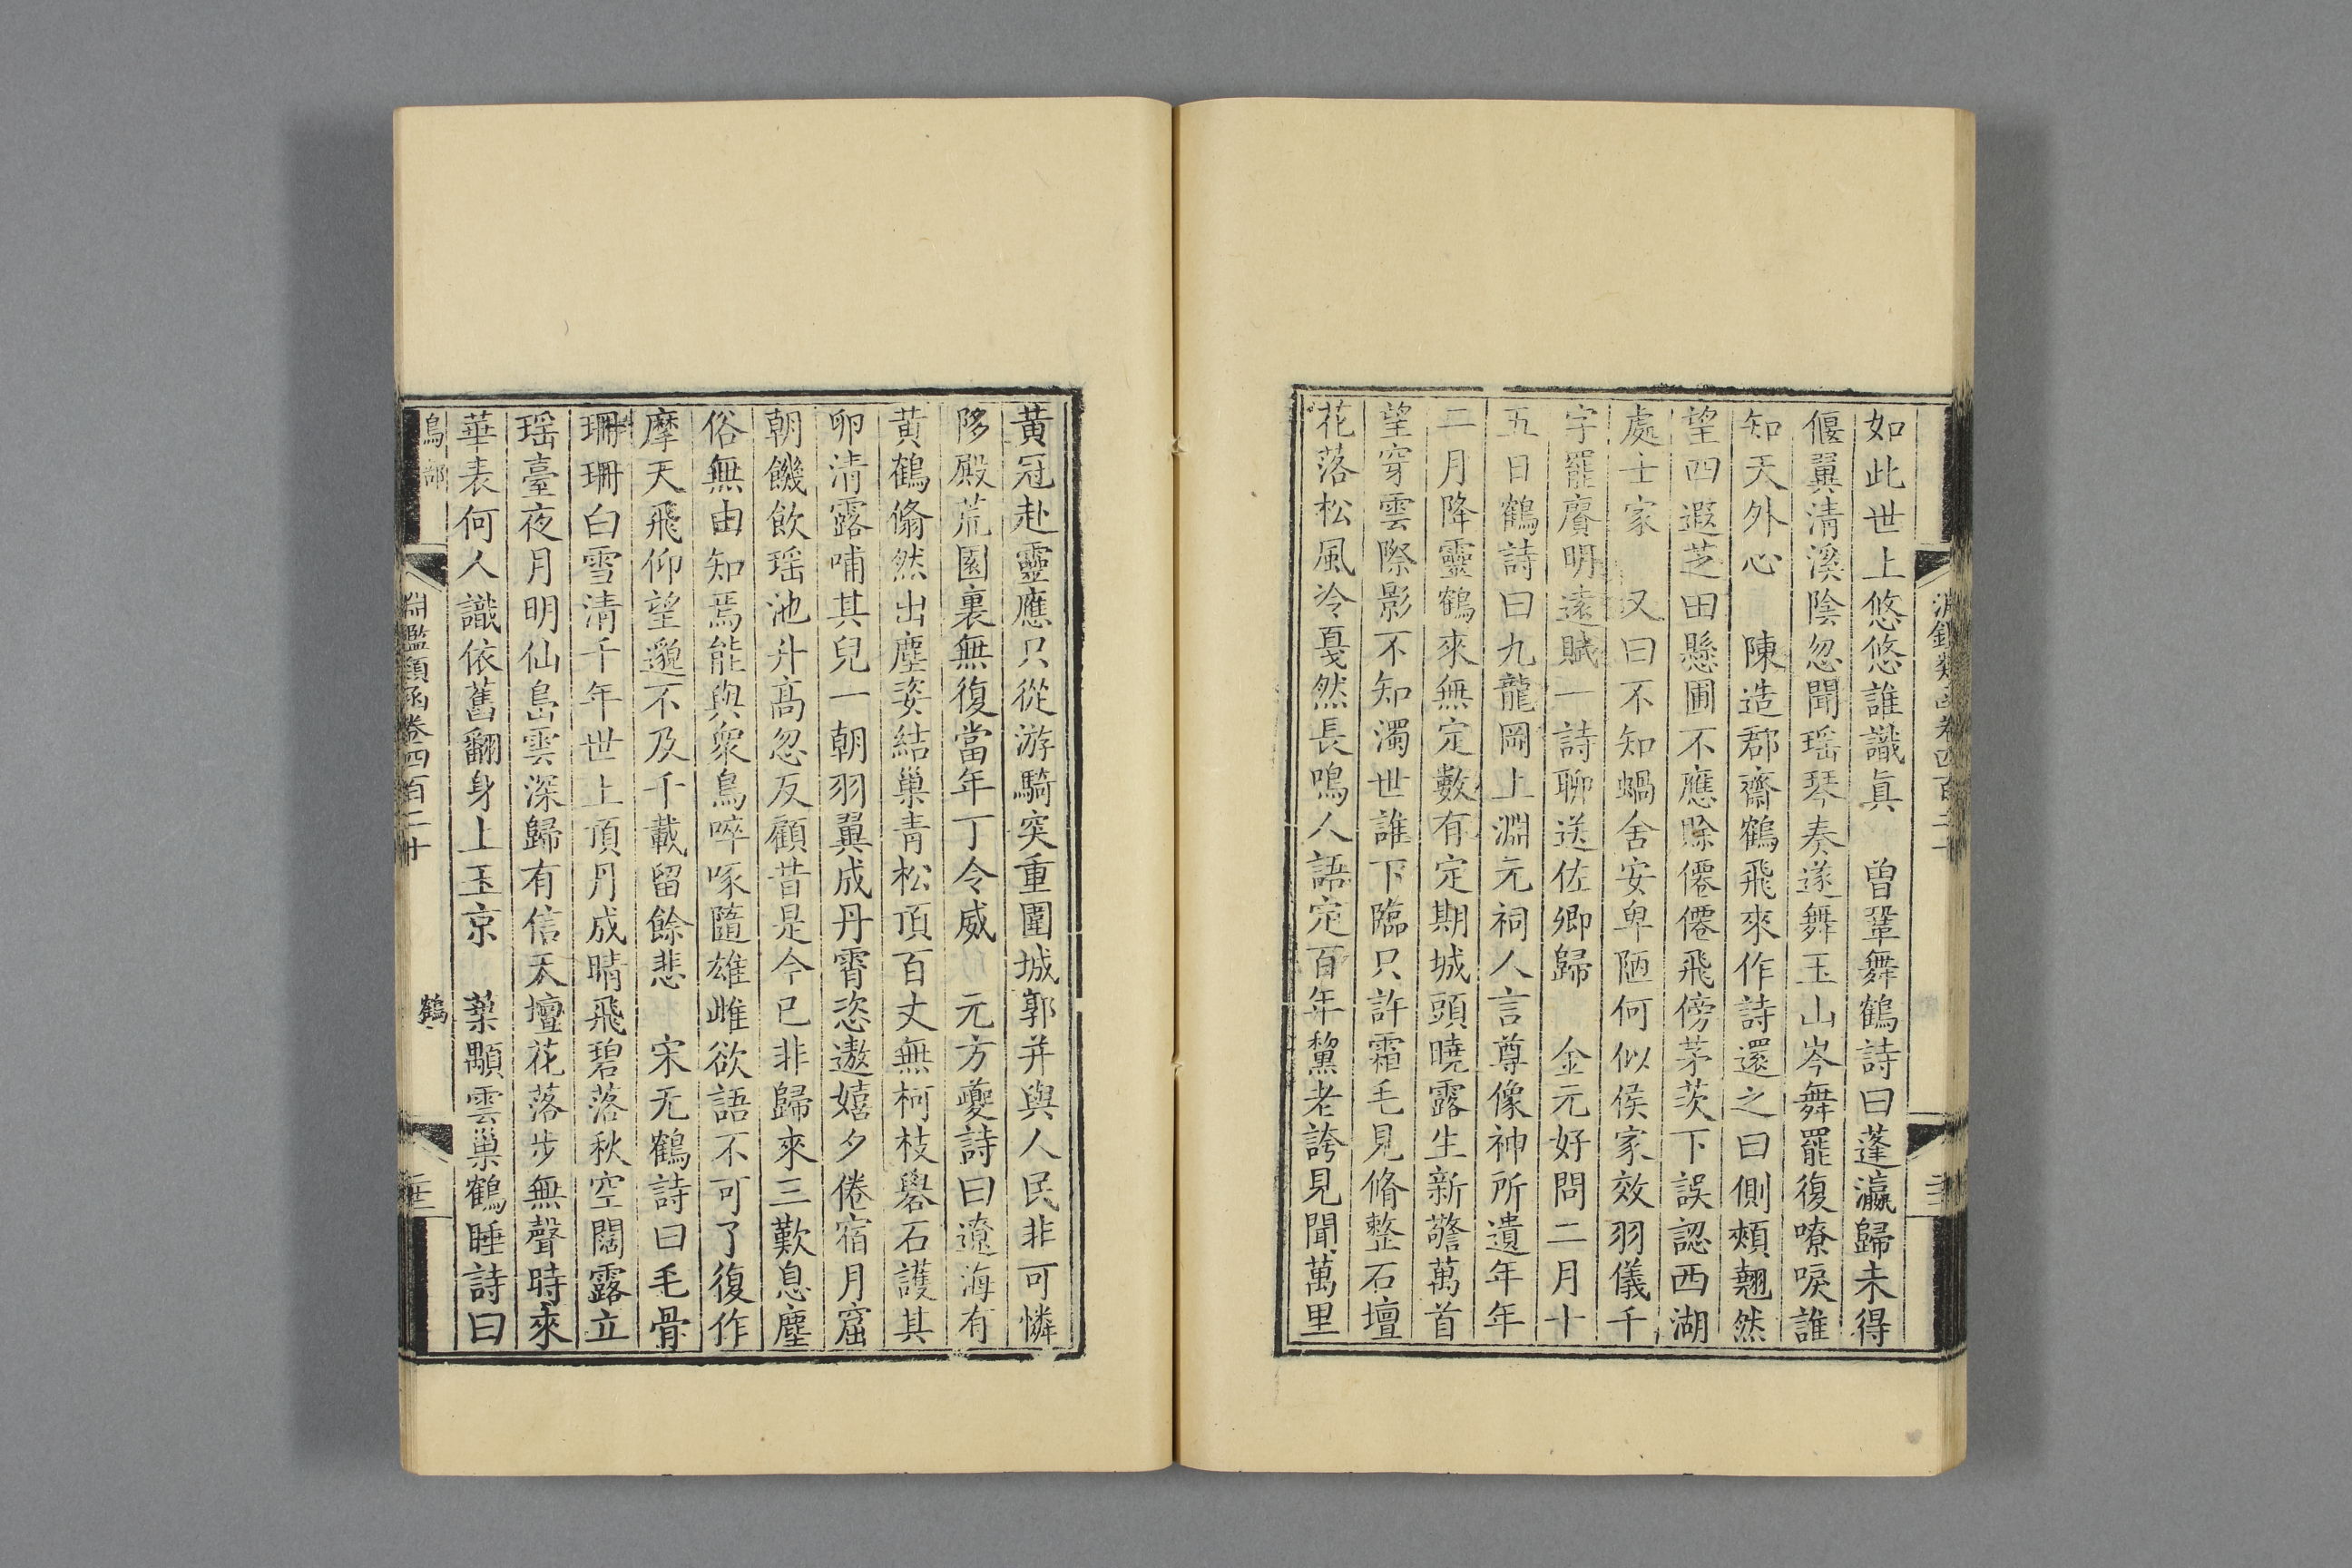 如此世上悠悠誰識眞　曾鞏舞鶴詩曰蓬瀛歸未得
偃翼清溪陰忽聞瑶琴奏遂舞玉山岑舞罷復嘹唳誰
知天外心　陳造郡齋鶴飛來作詩還之曰側頰翹然
望四遐芝田懸圃不應賒僊僊飛傍茅茨下誤認西湖
處士家　又曰不知蝸舍安卑陋何似侯家效羽儀千
字罷賡明遠賦一詩聊送佐卿歸　金元好問二月十
五日鶴詩曰九龍岡上淵元祠人言尊像神所遺年年
二月降靈鶴來無定數有定期城頭曉露生新警萬首
望穿雲際影不知濁世誰下臨只許霜毛見脩整石壇
花落松風冷戛然長鳴人語定百年黧老誇見聞萬里
黃冠赴靈應只從游騎突重圍城郭并與人民非可憐
陊殿荒園裏無復當年丁令威　元方夔詩曰遼海有
黃鶴翛然出塵姿結巢青松頂百丈無柯枝礐石護其
卵清露哺其兒一朝羽翼成丹霄恣遨嬉夕倦宿月窟
朝饑飲瑶池升高忽反顧昔是今已非歸來三歎息塵
俗無由知焉能與衆鳥啐啄隨雄雌欲語不可了復作
摩天飛仰望邈不及千載留餘悲　宋无鶴詩曰毛骨
珊珊白雪清千年世上頂丹成晴飛碧落秋空闊露立
瑶臺夜月明仙島雲深歸有信天壇花落步無聲時來
華表何人識依舊翻身上玉京　葉顒雲巢鶴睡詩曰
鳥部　鶴
淵鑑類函卷四百二十